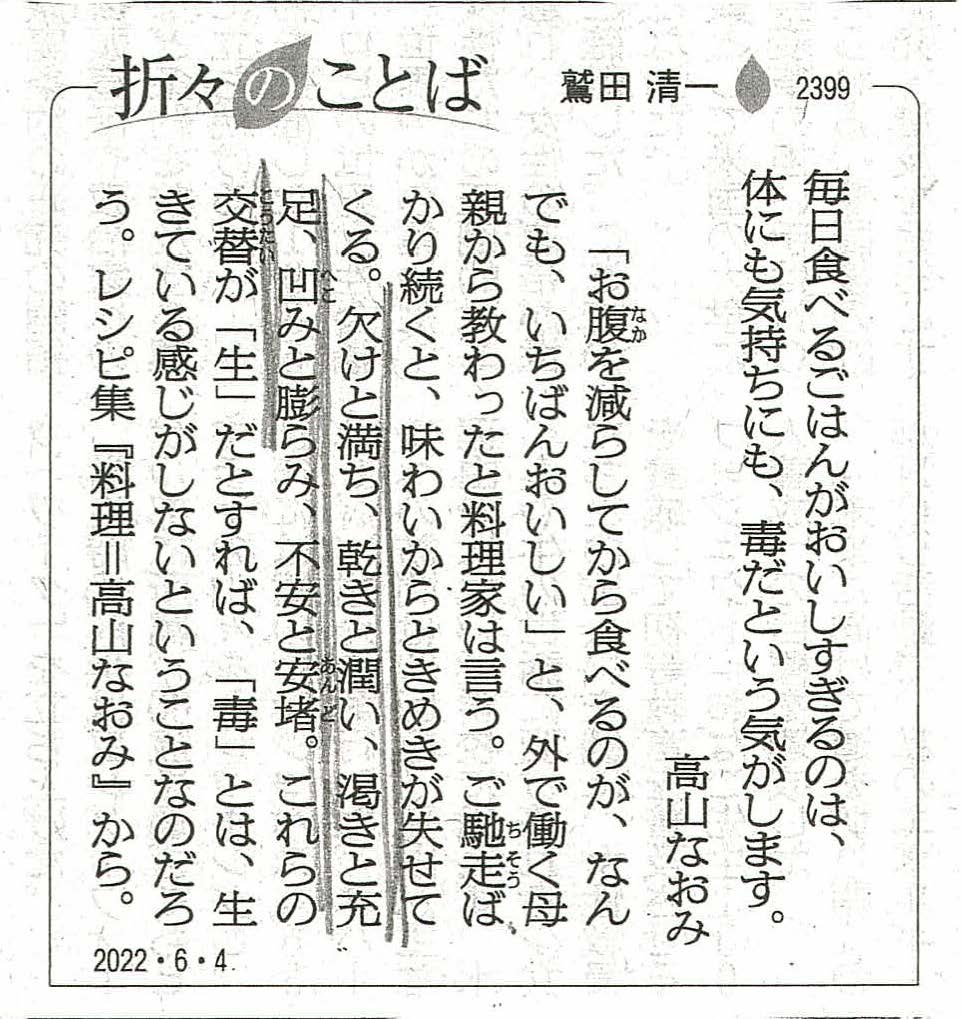 折々のことば
鷲田 清一
2399
毎日食べるごはんがおいしすぎるのは、
体にも気持ちにも、毒だという気がします。
高山なおみ
「お腹を減らしてから食べるのが、なん
でも、いちばんおいしい」と、外で働く母
親から教わったと料理家は言う。ご馳走ば
かり続くと、味わいからときめきが失せて
くる。欠けと満ち、乾きと潤い、渇きと充
足、凹みと膨らみ、不安と安堵。これらの
交替が「生」だとすれば、「毒」とは、生
きている感じがしないということなのだろ
う。レシピ集『料理＝高山なおみ』から。
なか
ちそう
へこ
あんど
こうたい
2022・6・4